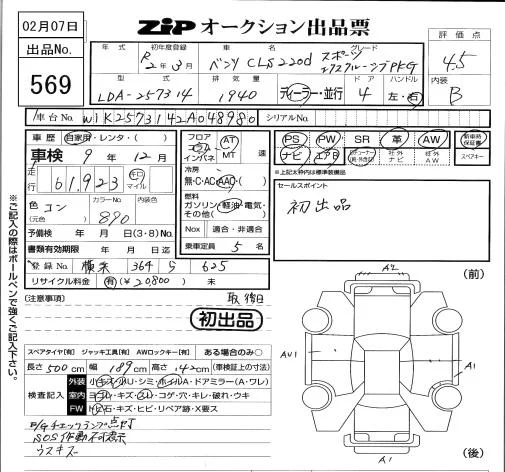 02月07日
ZIP オークション出品票
出品No.
569
年式
初年度登録
車名
グレード
R2年3月
ベンツ CLS220d スポーツ
エクスクルーシブPKG
評価点
4.5
内装
B
型式
排気量
ドア
ハンドル
LDA-257314
1940
ディーラー・並行
4
左・右
車台No.
W1K2573142A048980
シリアルNo.
車歴
自家用・レンタ・( )
車検 9年12月
走行
61,923
キロ
マイル
色(元色)
コン
カラーNo.
890
内装色
予備検 年 月 日(3・8)No.
書類有効期限 年 月 日
登録No. 横浜 364 ら 625
リサイクル料金 有(¥20,800) 未
フロア
コラム
インパネ
AT
MT
速
冷房
無・C・AC・AAC・( )
燃料
ガソリン・軽油・電気・
その他( )
Nox 適合・非適合
乗車定員 5 名
PS
PW
SR
革
AW
新車時保証書
ナビ
エアB
社外ナビ
社外AW
スペアキー
※上記太枠内は標準装備品
セールスポイント
初出品
※ご記入の際はボールペンで強くご記入下さい。
(注意事項)
初出品
スペアタイヤ[有] ジャッキ工具[有] AWロックキー[有] ある場合のみ○
長さ 500cm 幅 189cm 高さ 142cm (車検証上の寸法)
検査記入
外装
小キズ・小U・シミ・ホイルA・ドアミラー(A・ワレ)
室内
ヨゴレ・キズ・スレ・コゲ・穴・キレ・破れ・ウキ
FW
トビ石・キズ・ヒビ・リペア跡・X要ス
E/Gチェックランプ点灯
SOS作動不可表示
ウスキズ
(前)
A2
AU1
A1
A1
(後)